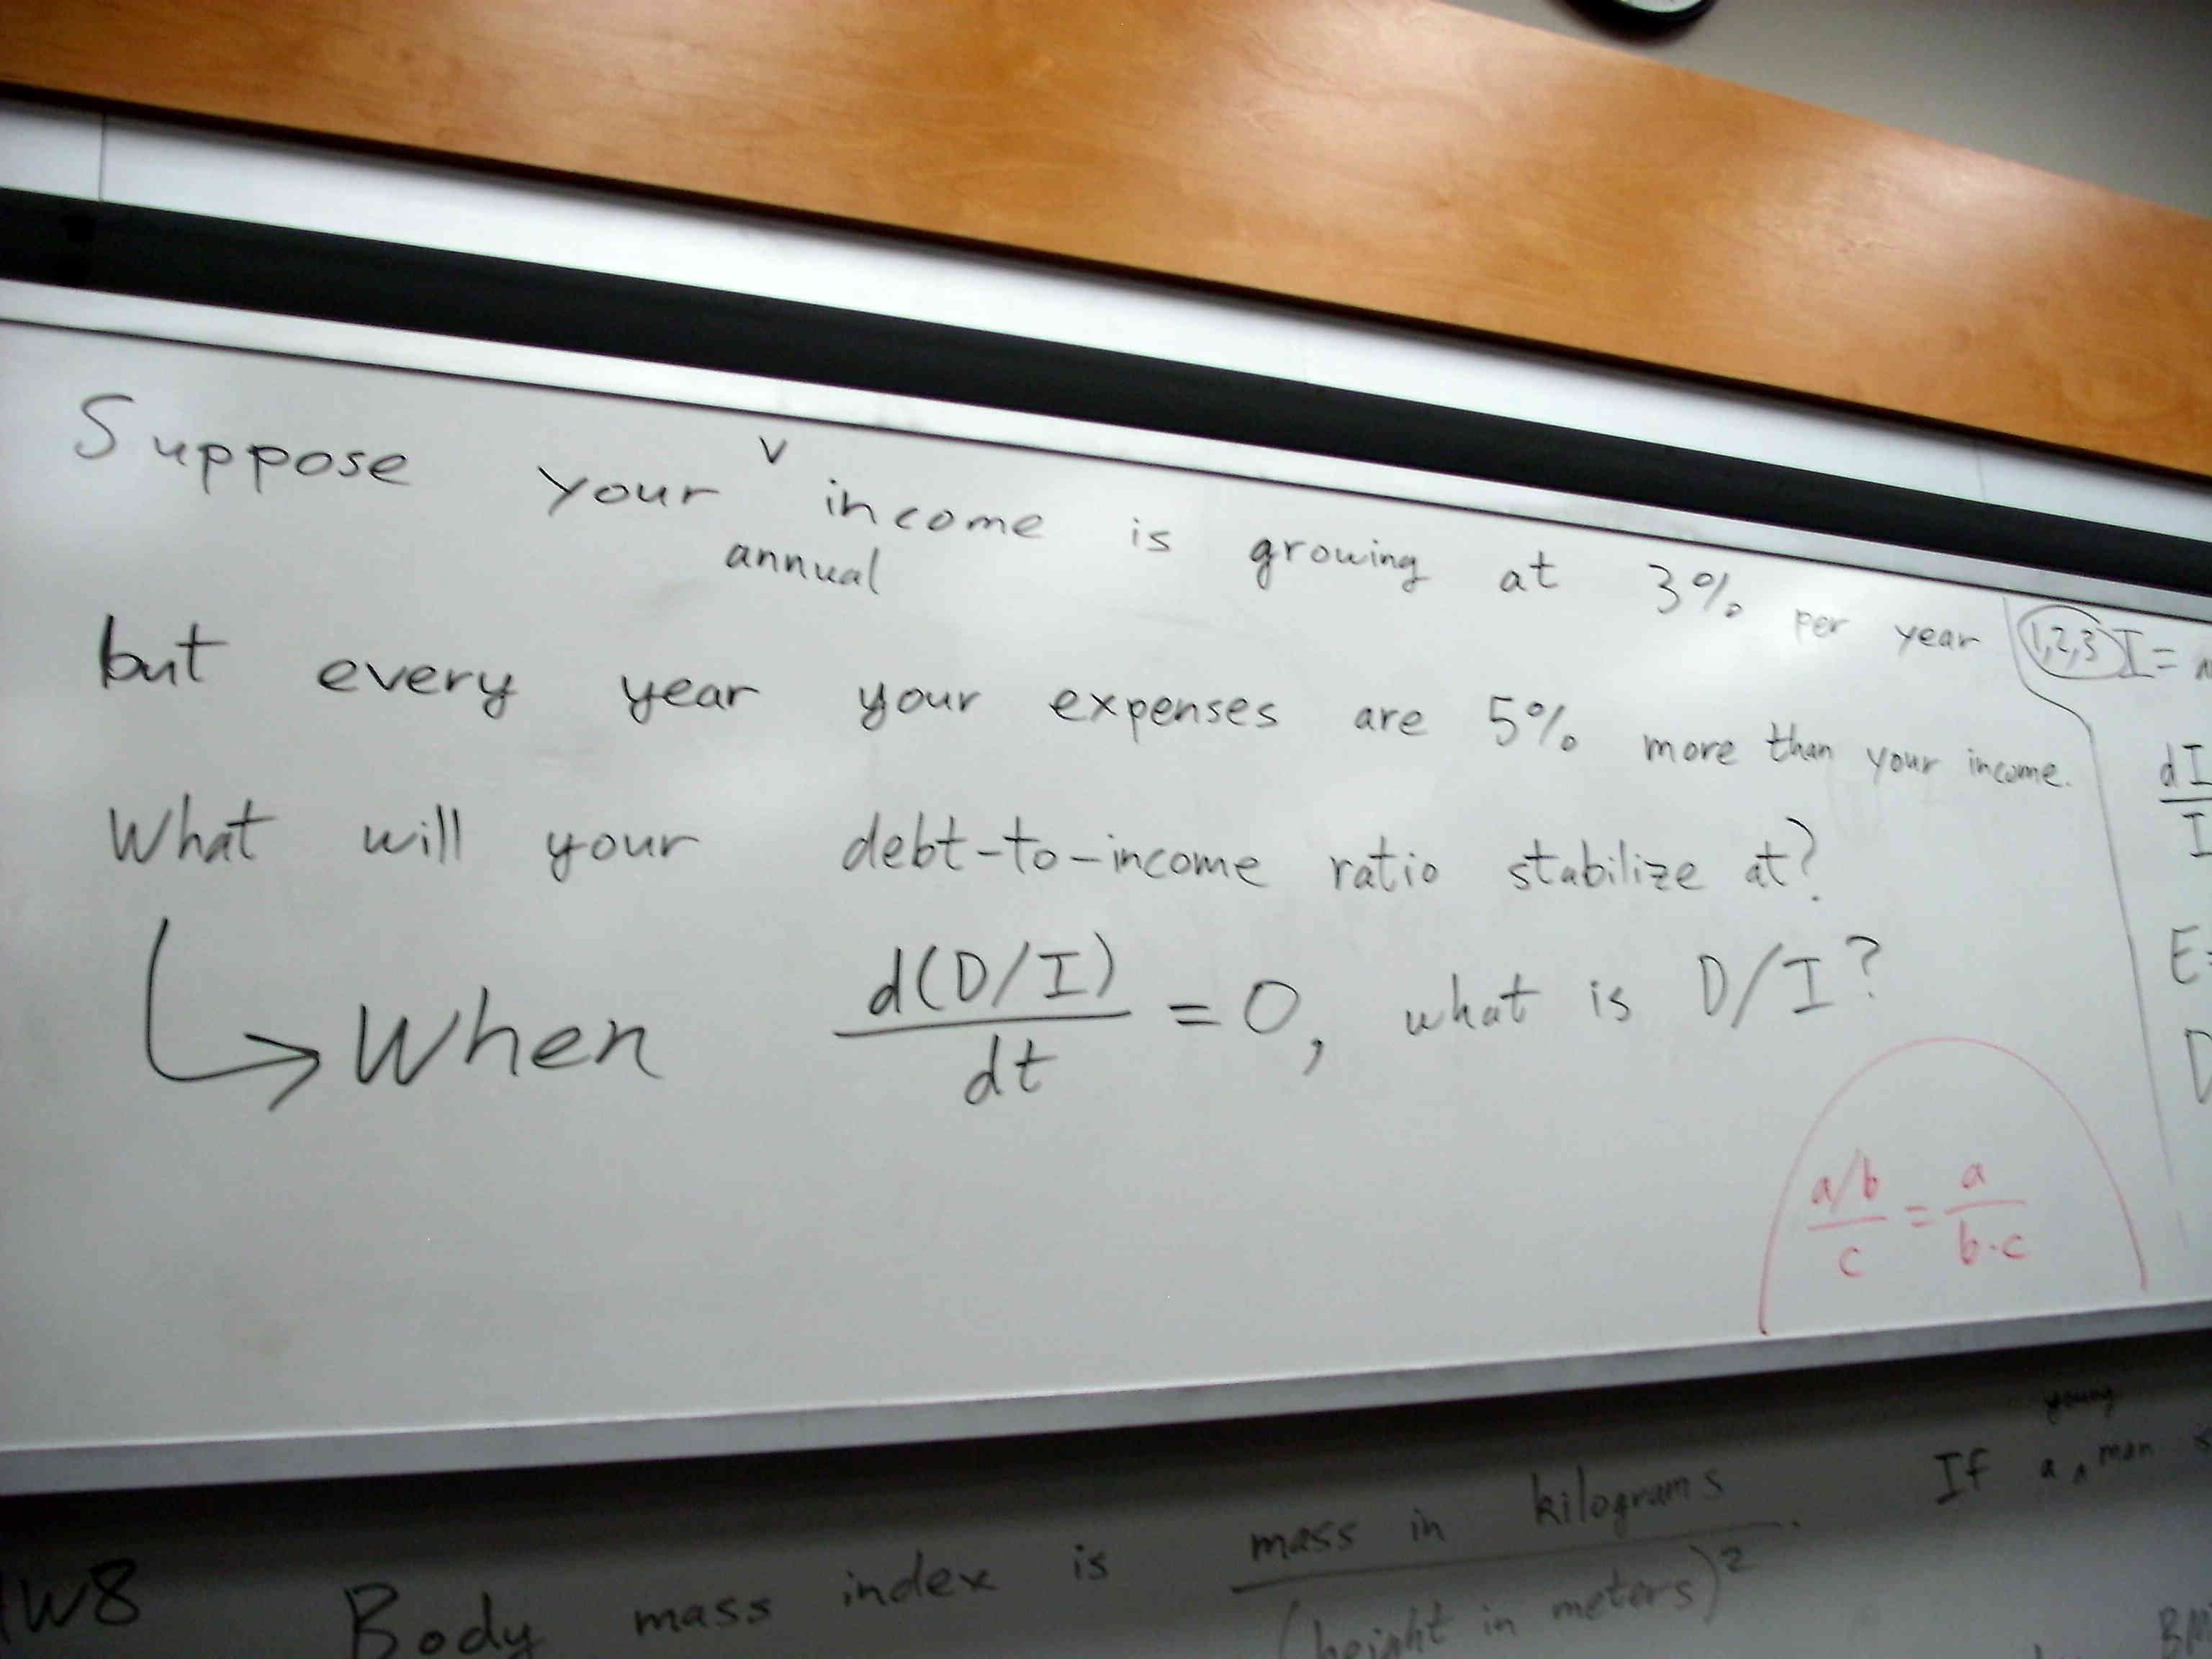 Suppose your ∨ income is growing at 3% per year
annual
but every year your expenses are 5% more than your income.
What will your debt-to-income ratio stabilize at?
When d(D/I)/dt = 0, what is D/I?
1,2,3 I=
dI
I
E=
D
a/b/c = a/b·c
young
If a ∧ man
W8 Body mass index is mass in kilograms/(height in meters)².